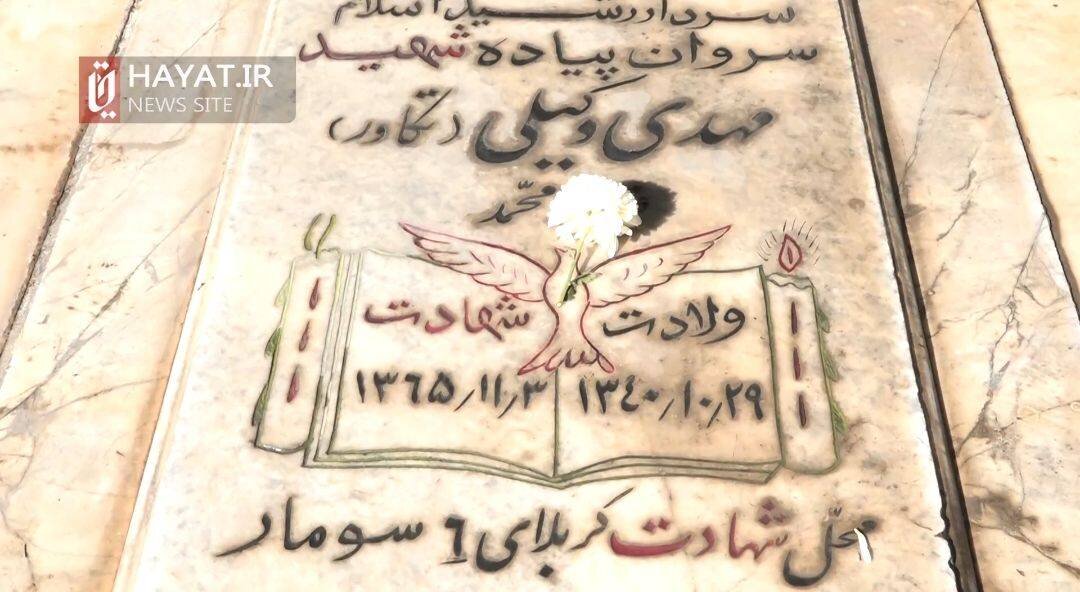 سردار رشید اسلام
سروان پیاده شهید
HAYAT.IR
NEWS SITE
مهدی وکیلی (تکاور)
محمّد
ولادت شهادت
۱۳۴۰٫۱۰٫۲۹ ۱۳۶۵٫۱۱٫۳
محلّ شهادت کربلای ۶ سومار